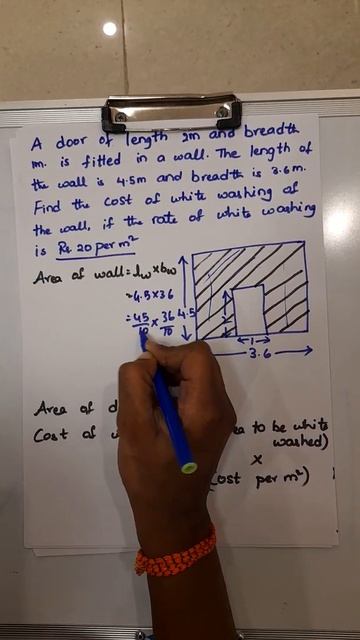 A door of length 2m and breadth
m. is fitted in a wall. The length of
the wall is 4.5m and breadth is 3.6m.
Find the cost of white washing of
the wall, if the rate of white washing
is Rs. 20 per m²
Area of wall = lw × bw
= 4.5 × 36
= 45/10 × 36/10
4.5
1
3.6
Area of d
Cost of w ea to be white
washed)
×
(Cost per m²)